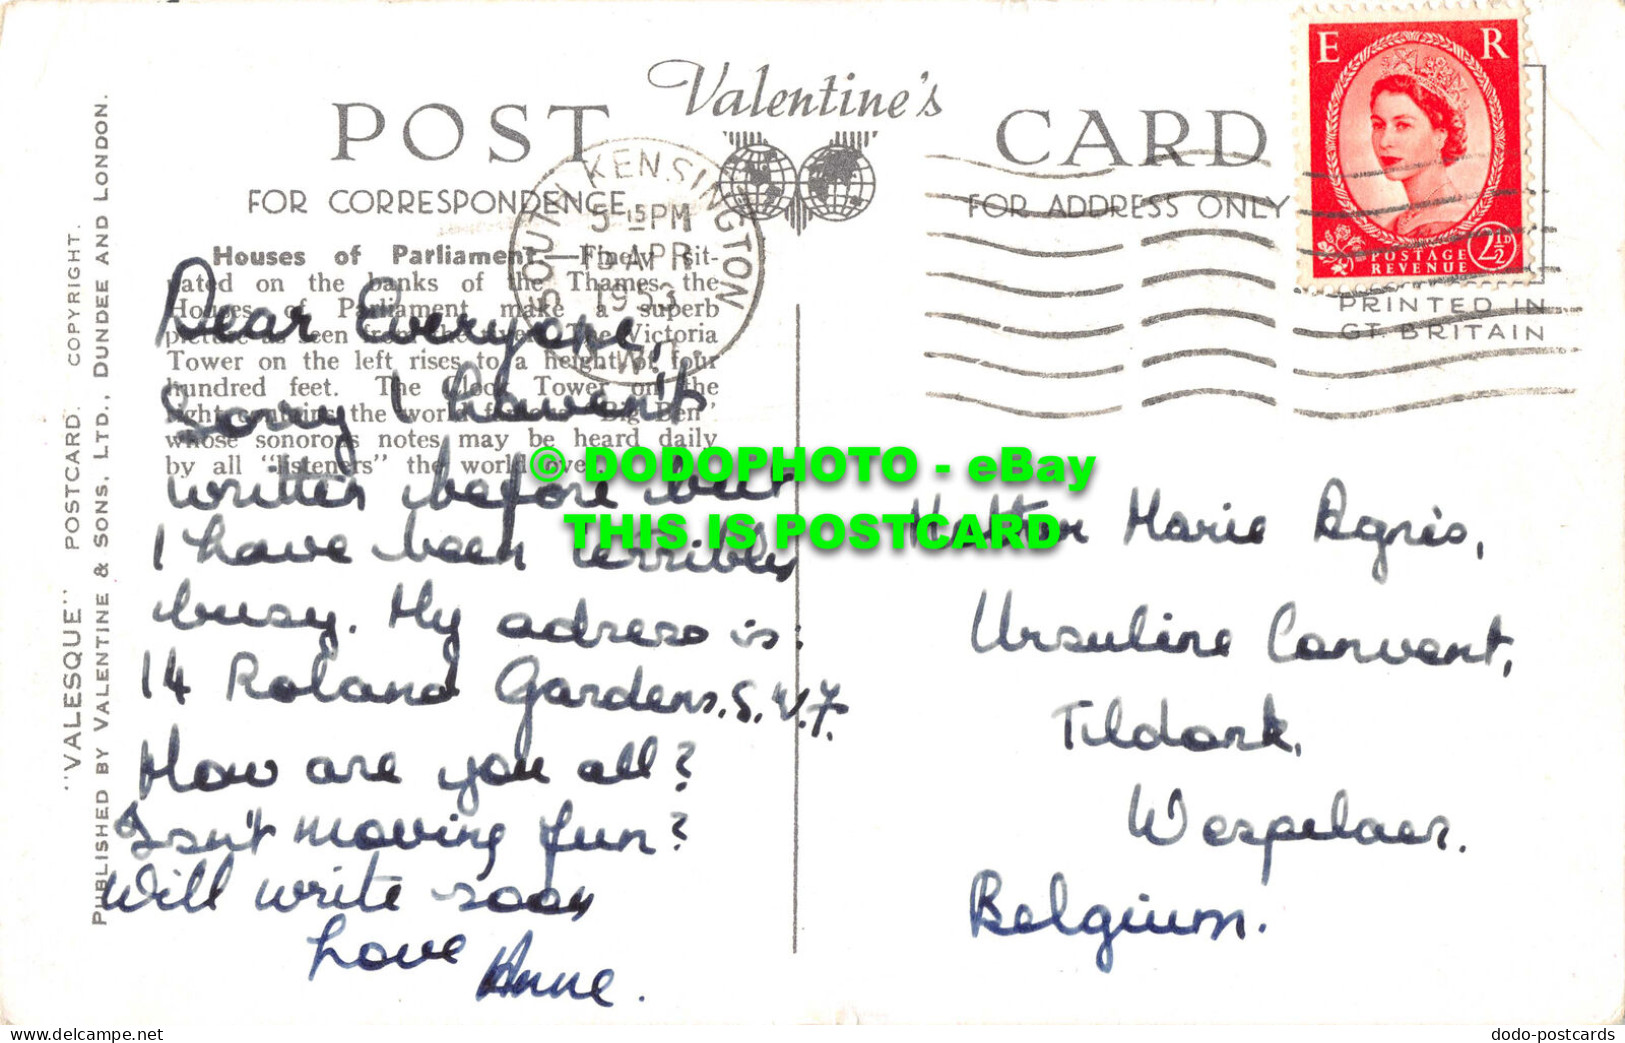 Valentine's
POST CARD
FOR CORRESPONDENCE
FOR ADDRESS ONLY
E R
POSTAGE
REVENUE
2½D
PRINTED IN
GT. BRITAIN
SOUTH KENSINGTON
5 15 PM
APR
1953
S.W.7.
"VALESQUE" POSTCARD. COPYRIGHT.
PUBLISHED BY VALENTINE & SONS, LTD., DUNDEE AND LONDON.
Houses of Parliament.—Finely sit-
uated on the banks of the Thames, the
Houses of Parliament make a superb
picture as seen from the river. The Victoria
Tower on the left rises to a height of four
hundred feet. The Clock Tower on the
right contains the world famous 'Big Ben'
whose sonorous notes may be heard daily
by all "listeners" the world over.
Dear Everyone,
Sorry I haven't
written before but
I have been terribly
busy. My adress is:
14 Roland Gardens. S.W.7.
How are you all?
Isn't moving fun?
Will write soon
Love Anne.
Marie Agnès,
Ursuline Convent,
Tildonk,
Wespelaer.
Belgium.
© DODOPHOTO - eBay
THIS IS POSTCARD
www.delcampe.net
dodo-postcards